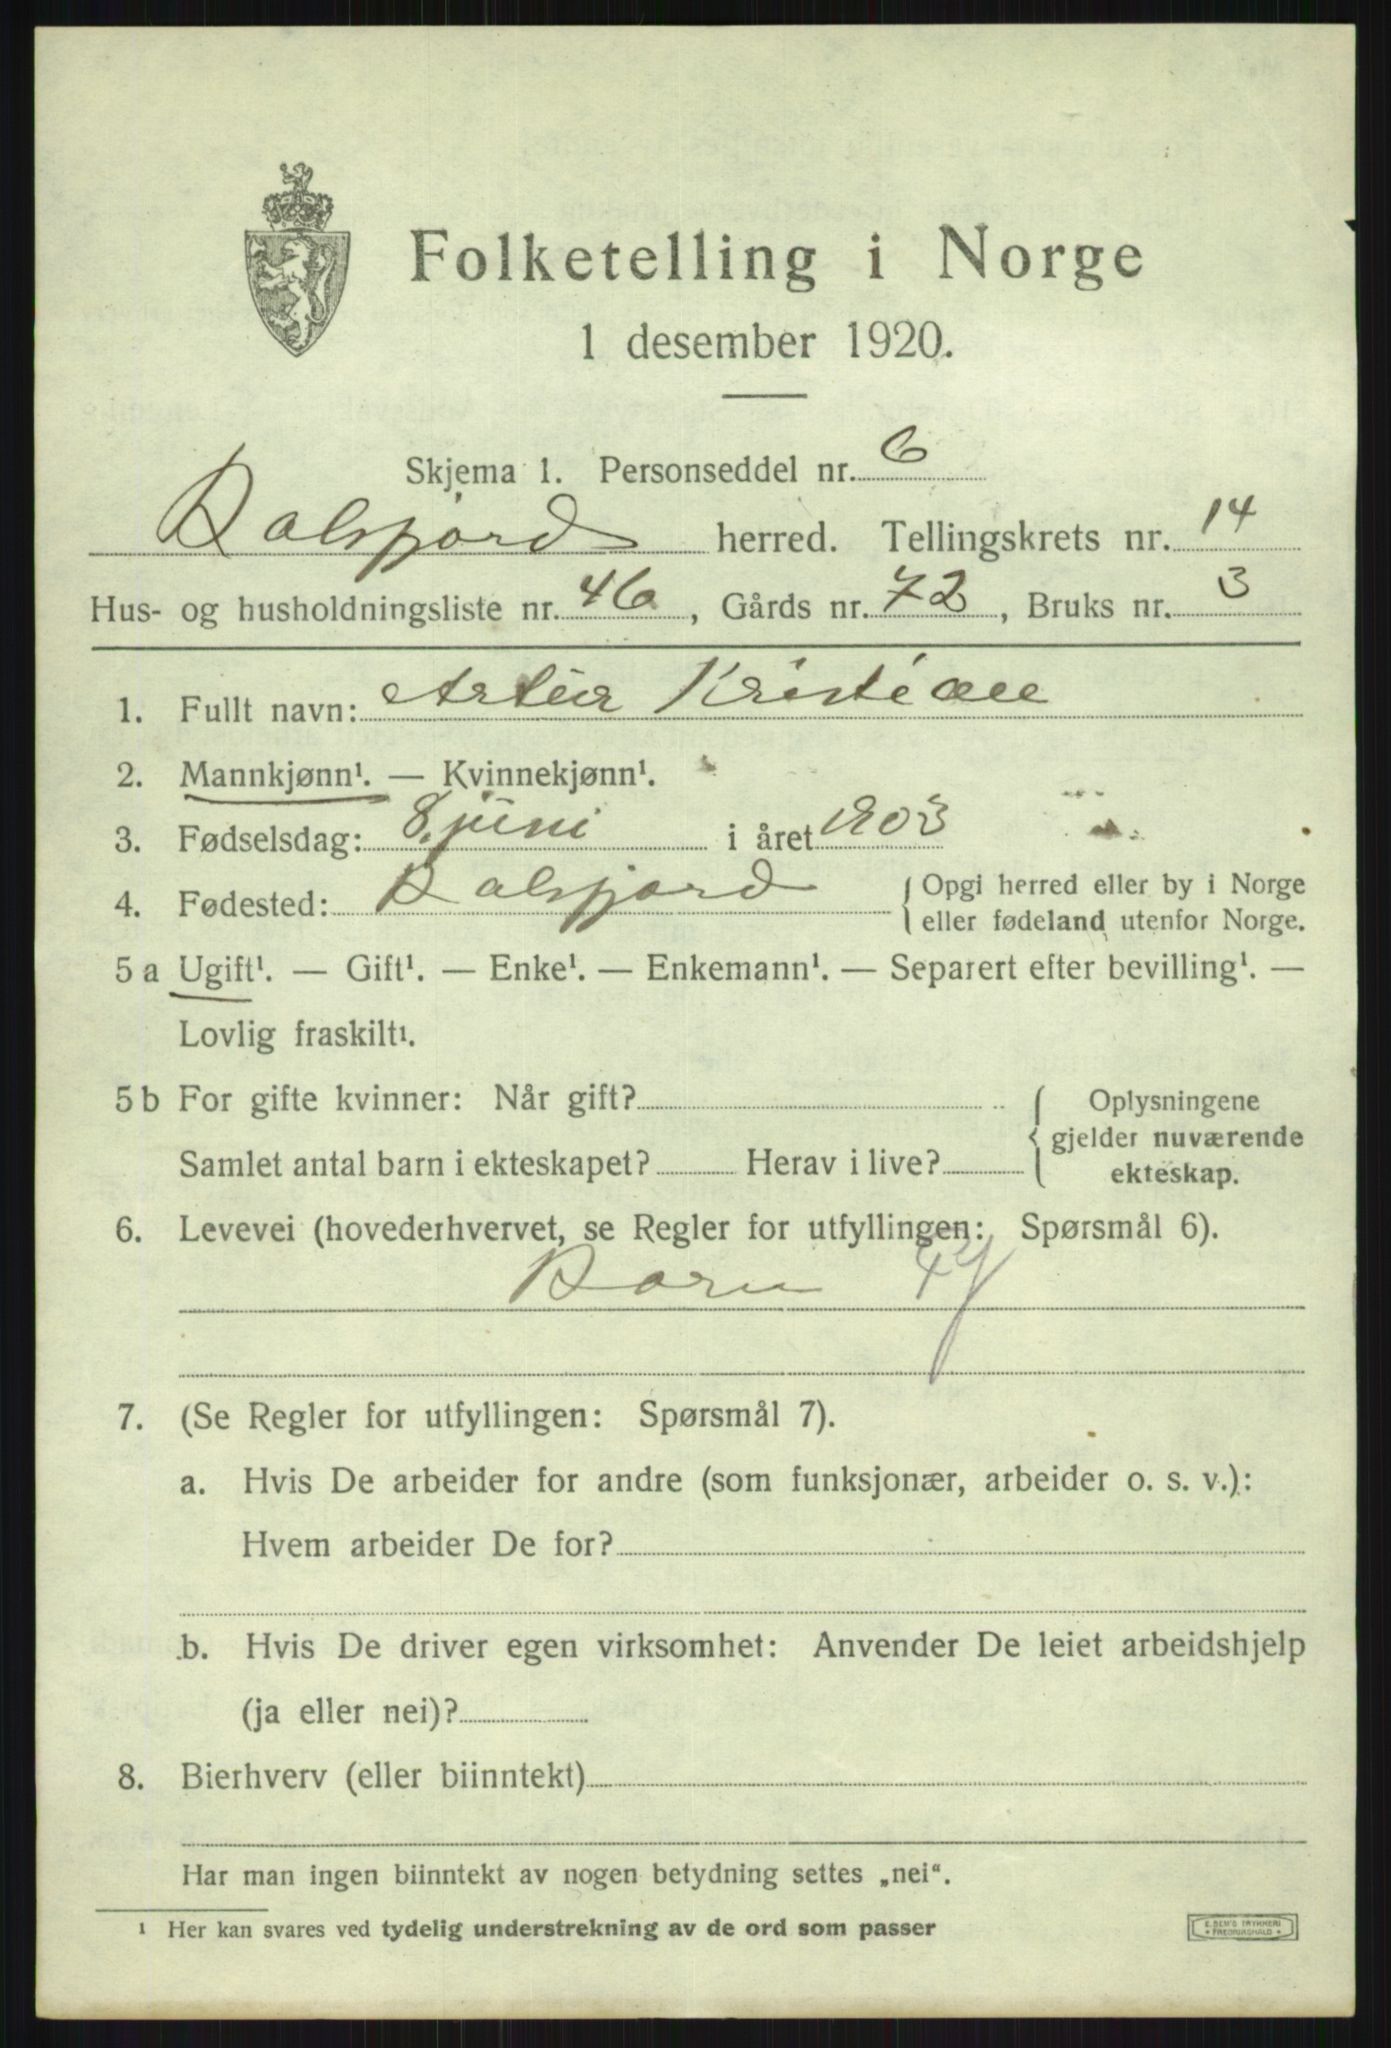 Folketelling i Norge
1 desember 1920.
Skjema 1. Personseddel nr. 6
Balsfjord herred. Tellingskrets nr. 14
Hus- og husholdningsliste nr. 46, Gårds nr. 72, Bruks nr. 3
1. Fullt navn: Artur Kristian
2. Mannkjønn¹. — Kvinnekjønn¹.
3. Fødselsdag: 8. juni i året 1903
4. Fødested: Balsfjord { Opgi herred eller by i Norge
eller fødeland utenfor Norge.
5 a Ugift¹. — Gift¹. — Enke¹. — Enkemann¹. — Separert efter bevilling¹. —
Lovlig fraskilt¹.
5 b For gifte kvinner: Når gift? { Oplysningene
gjelder nuværende
Samlet antal barn i ekteskapet? Herav i live? ekteskap.
6. Levevei (hovederhvervet, se Regler for utfyllingen: Spørsmål 6).
Barn
7. (Se Regler for utfyllingen: Spørsmål 7).
a. Hvis De arbeider for andre (som funksjonær, arbeider o. s. v.):
Hvem arbeider De for?
b. Hvis De driver egen virksomhet: Anvender De leiet arbeidshjelp
(ja eller nei)?
8. Bierhverv (eller biinntekt)
Har man ingen biinntekt av nogen betydning settes „nei".
¹ Her kan svares ved tydelig understrekning av de ord som passer
E. SEM'S TRYKKERI
FREDRIKSHALD